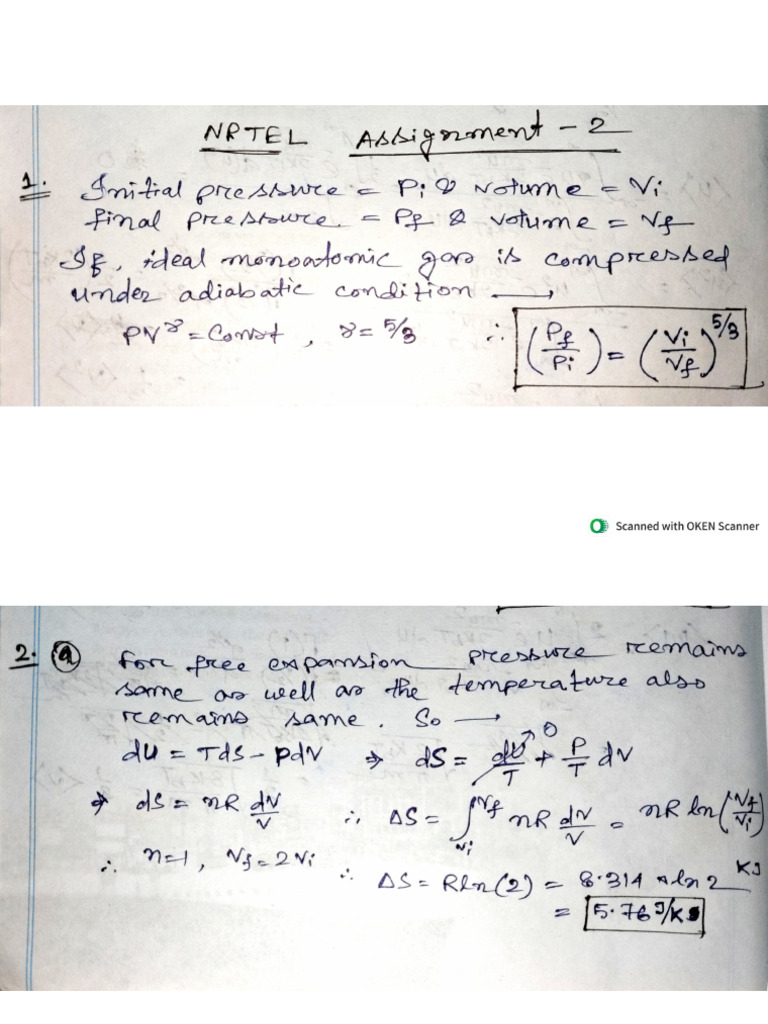 NPTEL Assignment - 2
1. Initial pressure = Pi & Volume = Vi
final pressure. = Pf & volume = Vf
If, ideal monoatomic gas is compressed
under adiabatic condition ⟶
PV^γ = Const, γ = 5/3 ∴ (Pf/Pi) = (Vi/Vf)^5/3
Scanned with OKEN Scanner
2. (a) for free expansion pressure remains
same as well as the temperature also
remains same. So ⟶
dU = Tds - PdV ⇒ ds = dU/T↗0 + P/T dV
⇒ ds = nR dV/V ∴ ΔS = ∫Vi^Vf nR dV/V = nR ln(Vf/Vi)
∴ n=1, Vf = 2Vi ∴ ΔS = R ln(2) = 8.314 × ln 2 KJ
= 5.76 J/K